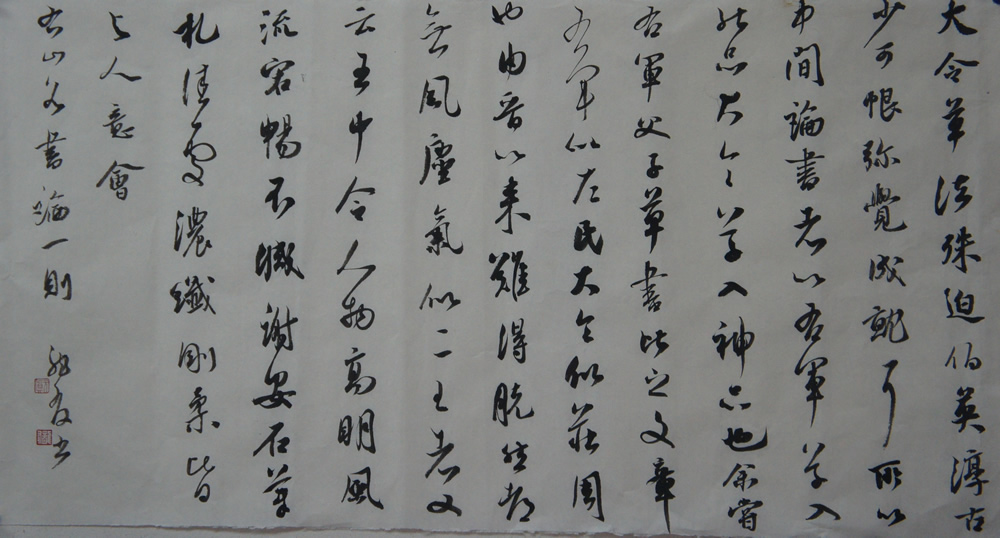 大令草法殊迫伯英淳古
少可恨弥覺成就耳所以
中間論書者以右軍草入
能品大令草入神品也余嘗
右軍父子草書比之文章
右軍似左氏大令似莊周
也由晉以來難得脫然都
無風塵氣似二王者又
云王中令人物高明風
流宏暢不減謝安石筆
札佳處濃纖剛柔皆
與人意會
右山谷書論一則 书